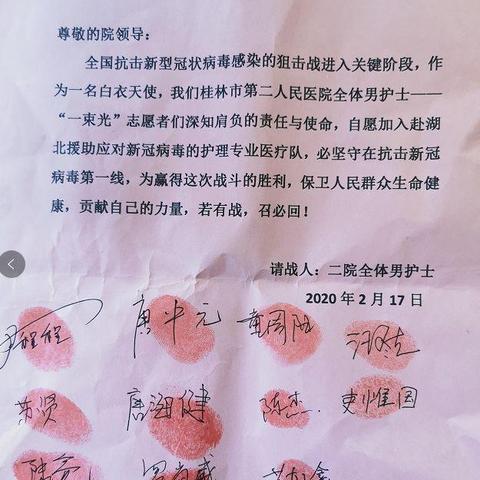 尊敬的院领导：
全国抗击新型冠状病毒感染的狙击战进入关键阶段，作
为一名白衣天使，我们桂林市第二人民医院全体男护士——
“一束光”志愿者们深知肩负的责任与使命，自愿加入赴湖
北援助应对新冠病毒的护理专业医疗队，必坚守在抗击新冠
病毒第一线，为赢得这次战斗的胜利，保卫人民群众生命健
康，贡献自己的力量，若有战，召必回！
请战人：二院全体男护士
2020 年 2 月 17 日
唐中元
唐海健 陈杰 史惟因